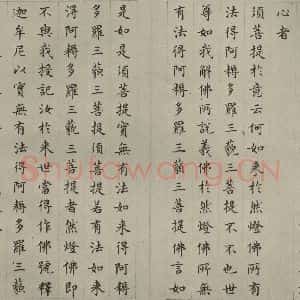 心者
須菩提於意云何如來於然燈佛所有
法得阿耨多羅三藐三菩提不不也世
尊如我解佛所說義佛於然燈佛所無
有法得阿耨多羅三藐三菩提佛言如
是如是須菩提實無有法如來得阿耨
多羅三藐三菩提須菩提若有法如來
得阿耨多羅三藐三菩提者然燈佛即
不與我授記汝於來世當得作佛號釋
迦牟尼以實無有法得阿耨多羅三藐
Shufawang.CN